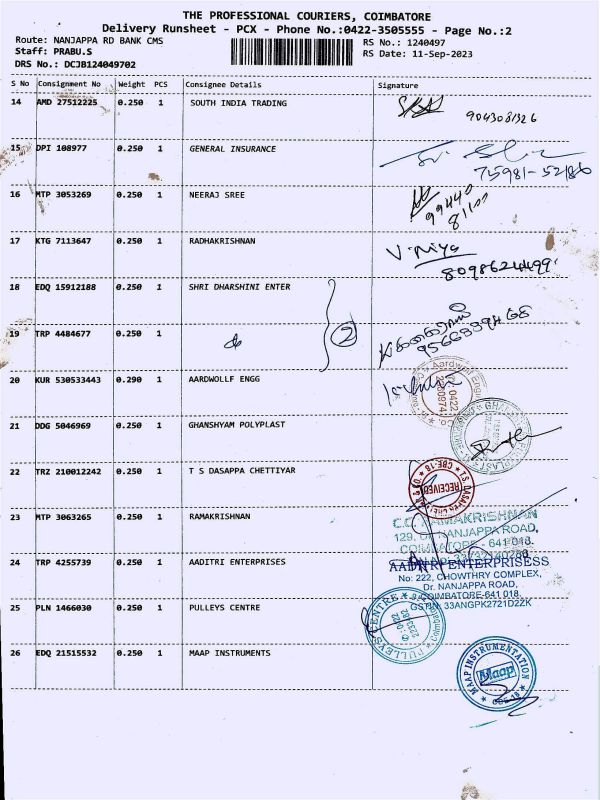 THE PROFESSIONAL COURIERS, COIMBATORE
Delivery Runsheet - PCX - Phone No.:0422-3505555 - Page No.:2
Route: NANJAPPA RD BANK CMS
RS No.: 1240497
Staff: PRABU.S
RS Date: 11-Sep-2023
DRS No.: DCJB124049702
S No Consignment No Weight PCS Consignee Details Signature
14 AMD 27512225 0.250 1 SOUTH INDIA TRADING
9043081326
15 DPI 108977 0.250 1 GENERAL INSURANCE
75981-52186
16 MTP 3053269 0.250 1 NEERAJ SREE
99440
81100
17 KTG 7113647 0.250 1 RADHAKRISHNAN
V. Niya
8098624499
18 EDQ 15912188 0.250 1 SHRI DHARSHINI ENTER
19 TRP 4484677 0.250 1
2
20 KUR 530533443 0.290 1 AARDWOLLF ENGG
21 DDG 5046969 0.250 1 GHANSHYAM POLYPLAST
22 TRZ 210012242 0.250 1 T S DASAPPA CHETTIYAR
RECEIVED
CBE-18
23 MTP 3063265 0.250 1 RAMAKRISHNAN
C.G. RAMAKRISHNAN
NANJAPPA ROAD,
COIMBATORE - 641 018.
24 TRP 4255739 0.250 1 AADITRI ENTERPRISES
AADITRI ENTERPRISESS
No: 222, CHOWTHRY COMPLEX,
Dr. NANJAPPA ROAD,
COIMBATORE-641 018.
GSTIN: 33ANGPK2721D2ZK
25 PLN 1466030 0.250 1 PULLEYS CENTRE
PULLEYS CENTRE
26 EDQ 21515532 0.250 1 MAAP INSTRUMENTS
MAAP INSTRUMENTATION
Maap
CBE-18